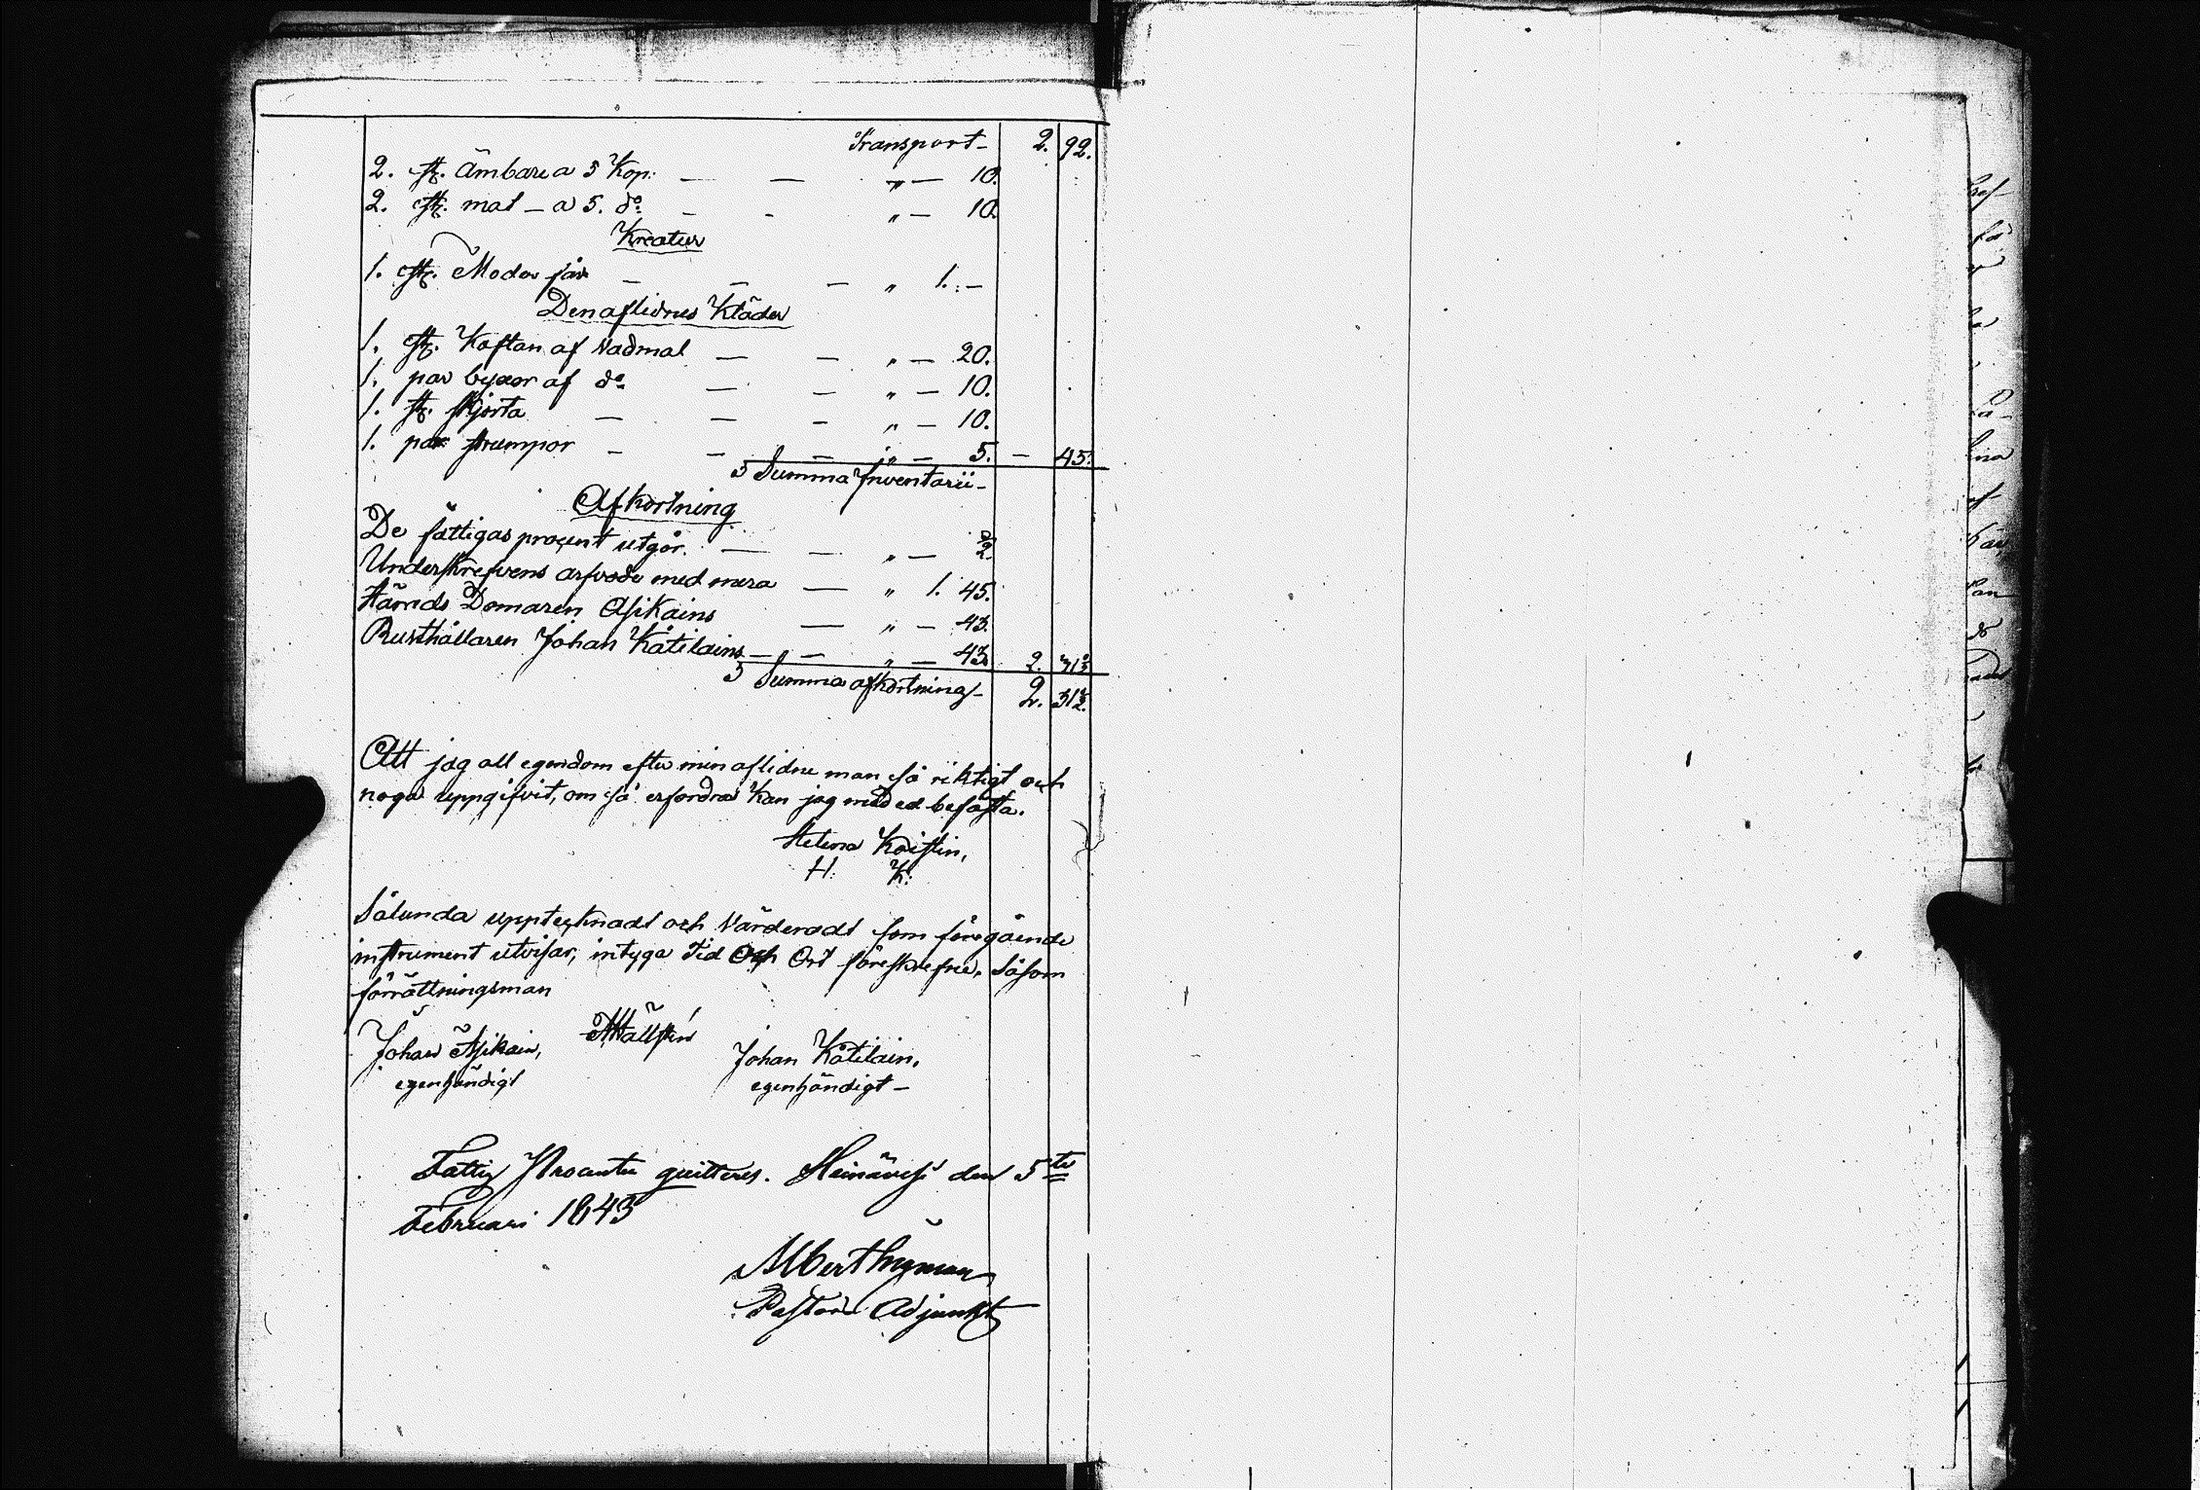 Transport— 2. 92.
2. st. Ämbare a 5 Kop: — — „ — 10.
2. st. mat — a 5. do — - „ — 10.
Kreatur
1. st. Moder får — — — „ 1. —
Den aflidnes Kläder
1. st. Kaftan af Vadmal — — „ — 20.
1. par byxor af do — — „ — 10.
1. st. skjorta — — - „ — 10.
1. par strumpor — — — „ — 5. — 45.
Summa Inventarii—
Afkortning
De fattigas procent utgår. — — „ —
Underskrefvens arfvode med mera — „ 1. 45.
Härads Domaren Asikains — „ — 43.
Rusthållaren Johan Kåtilains — — „ — 43. 2.
Summa afkortning— 2. 31½.
Att jag all egendom efter min aflidne man så riktigt och
noga uppgifvit, om så erfordras kan jag med ed befästa.
Helena Koistin,
H. K:
Sålunda upptecknadt och Värderadt som föregående
instrument utvisar, intyga Tid Och Ort föreskrefne. Såsom
förrättningsman
Johan Asikain,
egenhändigt
Johan Kåtilain,
egenhändigt —
Fattig Procenten quitteres. Heinävesi den 5te
Februari 1843
Albert Nyman
Pastors Adjunkt